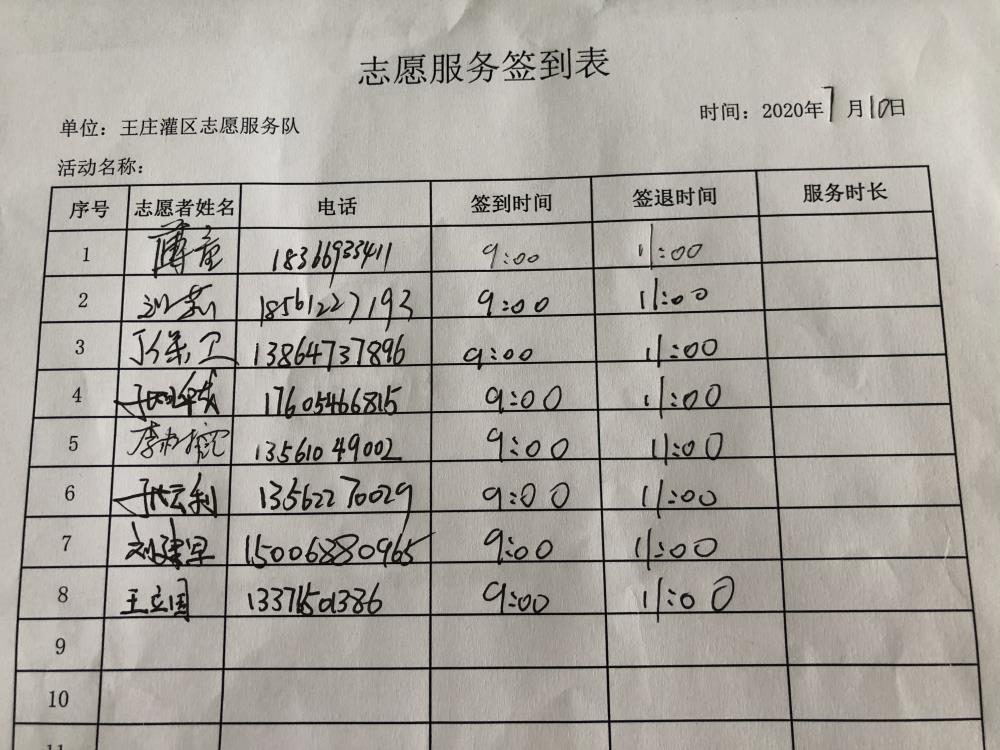 志愿服务签到表
单位：王庄灌区志愿服务队 时间：2020年7月10日
活动名称：
序号 志愿者姓名 电话 签到时间 签退时间 服务时长
1 18366933411 9:00 11:00
2 18561227193 9:00 11:00
3 丁保卫 13864737896 9:00 11:00
4 17605466815 9:00 11:00
5 13561049002 9:00 11:00
6 13562270029 9:00 11:00
7 刘建军 15006880965 9:00 11:00
8 王立国 9:00 11:00
9
10
11